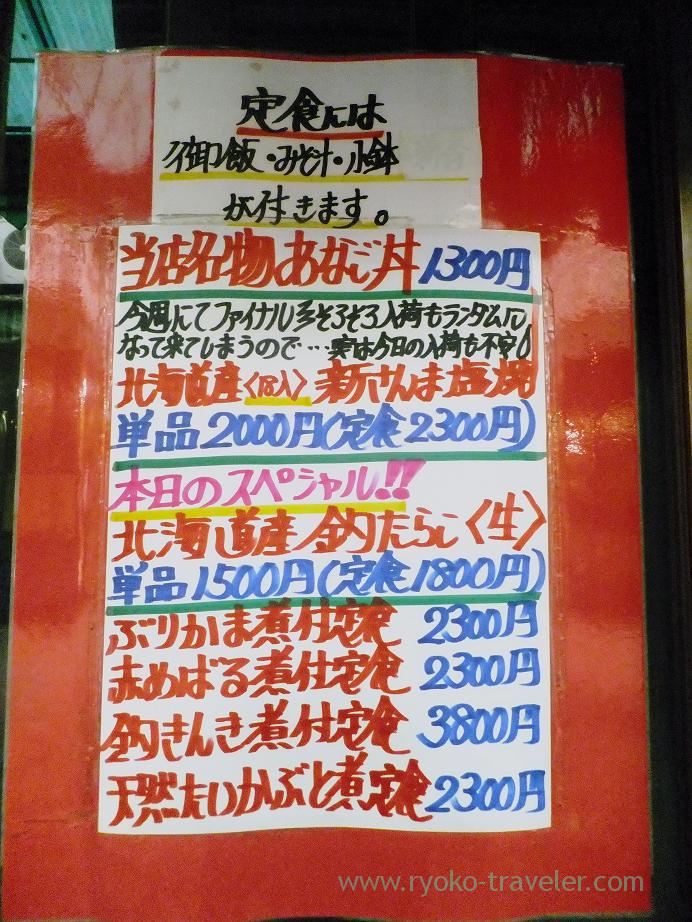 定食には
御飯・みそ汁・小鉢
が付きます。
当店名物あなご丼 1300円
今週にてファイナル!?そろそろ入荷もランダムに
なって来てしまうので…実は今日の入荷も不安!
北海道産 新さんま塩焼
単品2000円(定食2300円)
本日のスペシャル!!
北海道産 釣たらこ〈生〉
単品1500円(定食1800円)
ぶりかま煮付定食 2300円
赤めばる煮付定食 2300円
釣きんき煮付定食 3800円
天然たいかぶと煮定食 2300円
www.ryoko-traveler.com